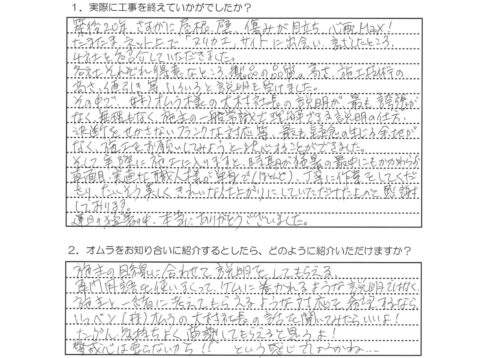 1. 実際に工事を終えていかがでしたか？
築後20年、さすがに屋根、壁、傷みが目立ち、心配Max！
たまたまネット上で「ヌリカエ」サイトに出会い、おたのしたところ、
4社を紹介していただきました。
各社それぞれ得意なところ、製品の品質の高さ、施工技術の
高さ、値引き等、いろいろと説明を受けました。
その中で、(株)オムラ様の大村社長の説明が、最も誇張が
なく、無理もなく、施主の一般常識で理解できる説明の仕方、
決断をせかさないフランクな対応等、最も
なく、施工をお願いしてみようと決心することができました。
そして実際に施工に入りますと、時期が猛暑の最中にもかかわらず
真面目、実直な職人様が(ほとんど)、丁寧に作業をしてくだ
さり、たいそう美しくきれいな仕上がりにしていただけたものと感謝
しております。
連日の猛暑の中、本当にありがとうございました。
2. オムラをお知り合いに紹介するとしたら、どのように紹介いただけますか？
施主の目線に合わせて説明をしてもらえる。
専門用語を使いまくって、ケムに巻かれるような説明ではなく、
施主と一緒に考えてもらえるような対応を希望するなら
いっぺん(株)オムラの大村社長の話を聞いてみたらいいよ！
たぶん、気持ちよく
警戒心は要らないから!! という感じでしょうかね…